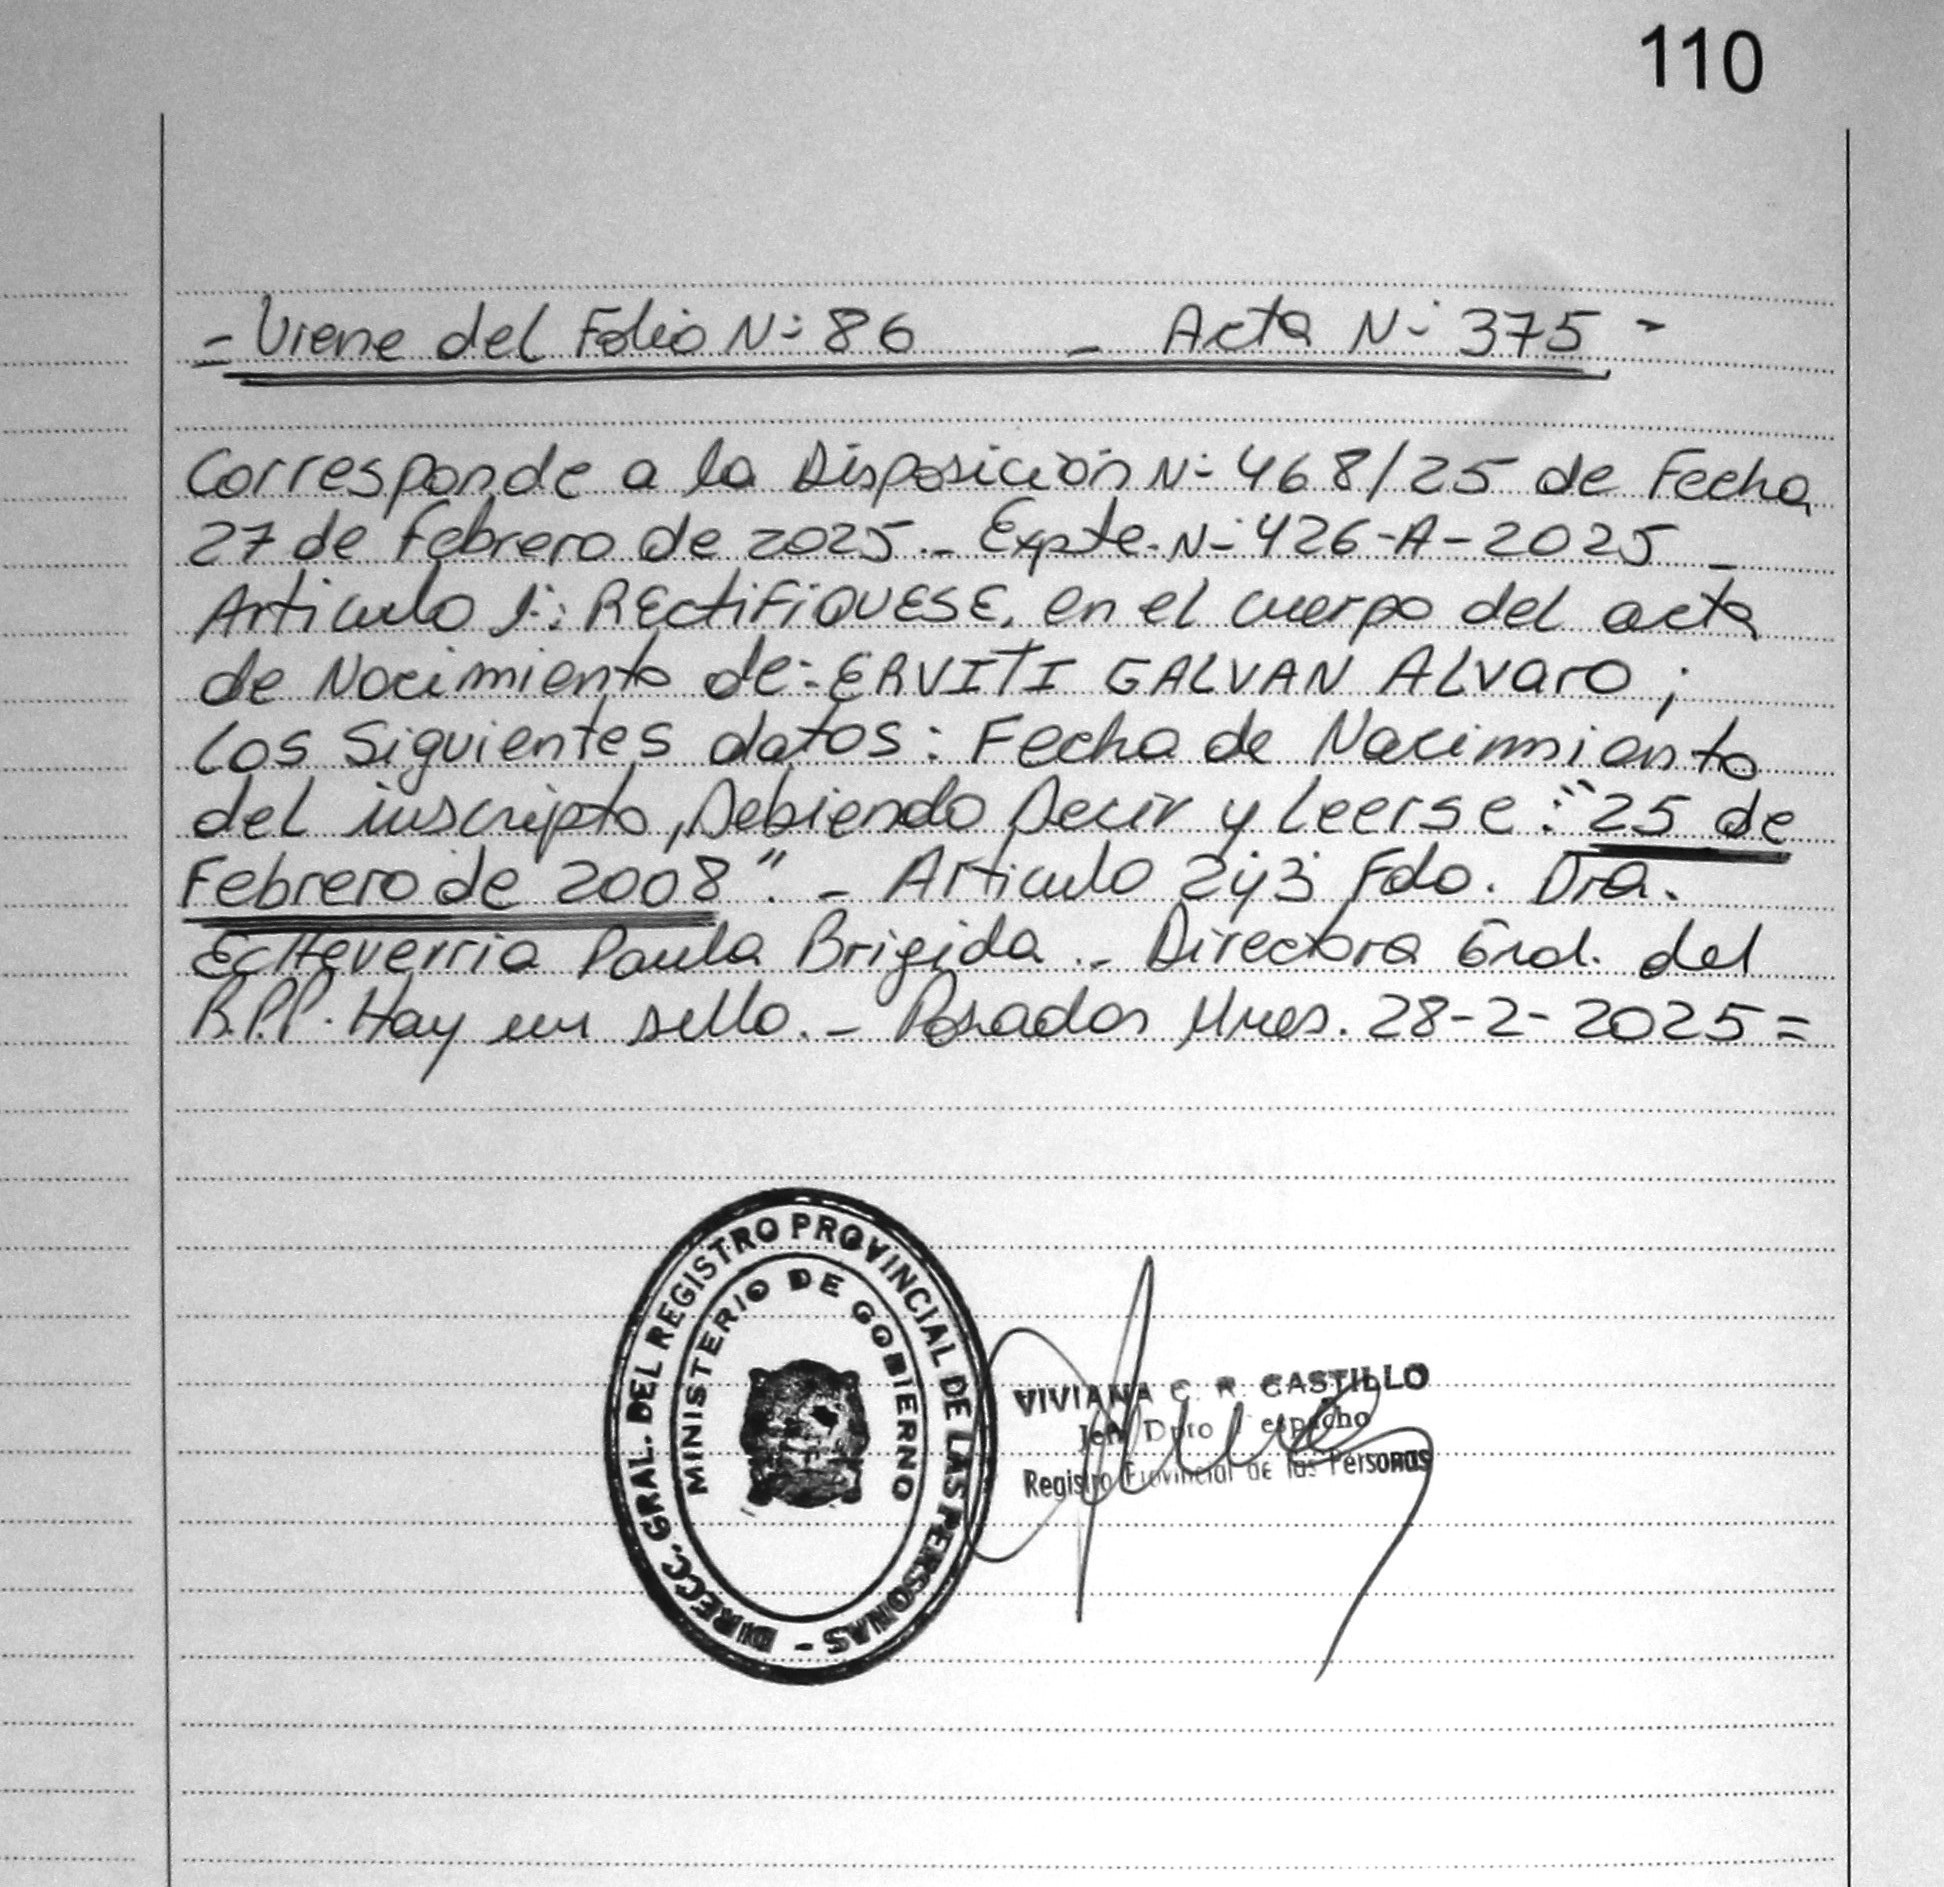 110
- Viene del Folio N: 86 - Acta N: 375 -
Corresponde a la Disposición N: 468/25 de Fecha
27 de Febrero de 2025.- Expte. N: 426-A-2025 -
Articulo 1: RECTIFIQUESE, en el cuerpo del acta
de Nacimiento de: ERVITI GALVAN ALVARO ;
los Siguientes datos: Fecha de Nacimiento
del inscripto, Debiendo Decir y Leerse: "25 de
Febrero de 2008". - Articulo 2 y 3 Fdo. Dra.
Echeverria Paula Brigida - Directora Gral. del
R.P.P. Hay un sello. - Posadas Mnes. 28-2-2025 =
DIRECC. GRAL. DEL REGISTRO PROVINCIAL DE LAS PERSONAS -
MINISTERIO DE GOBIERNO
VIVIANA C. R. CASTILLO
Dpto espacho
Registro Provincial de las Personas